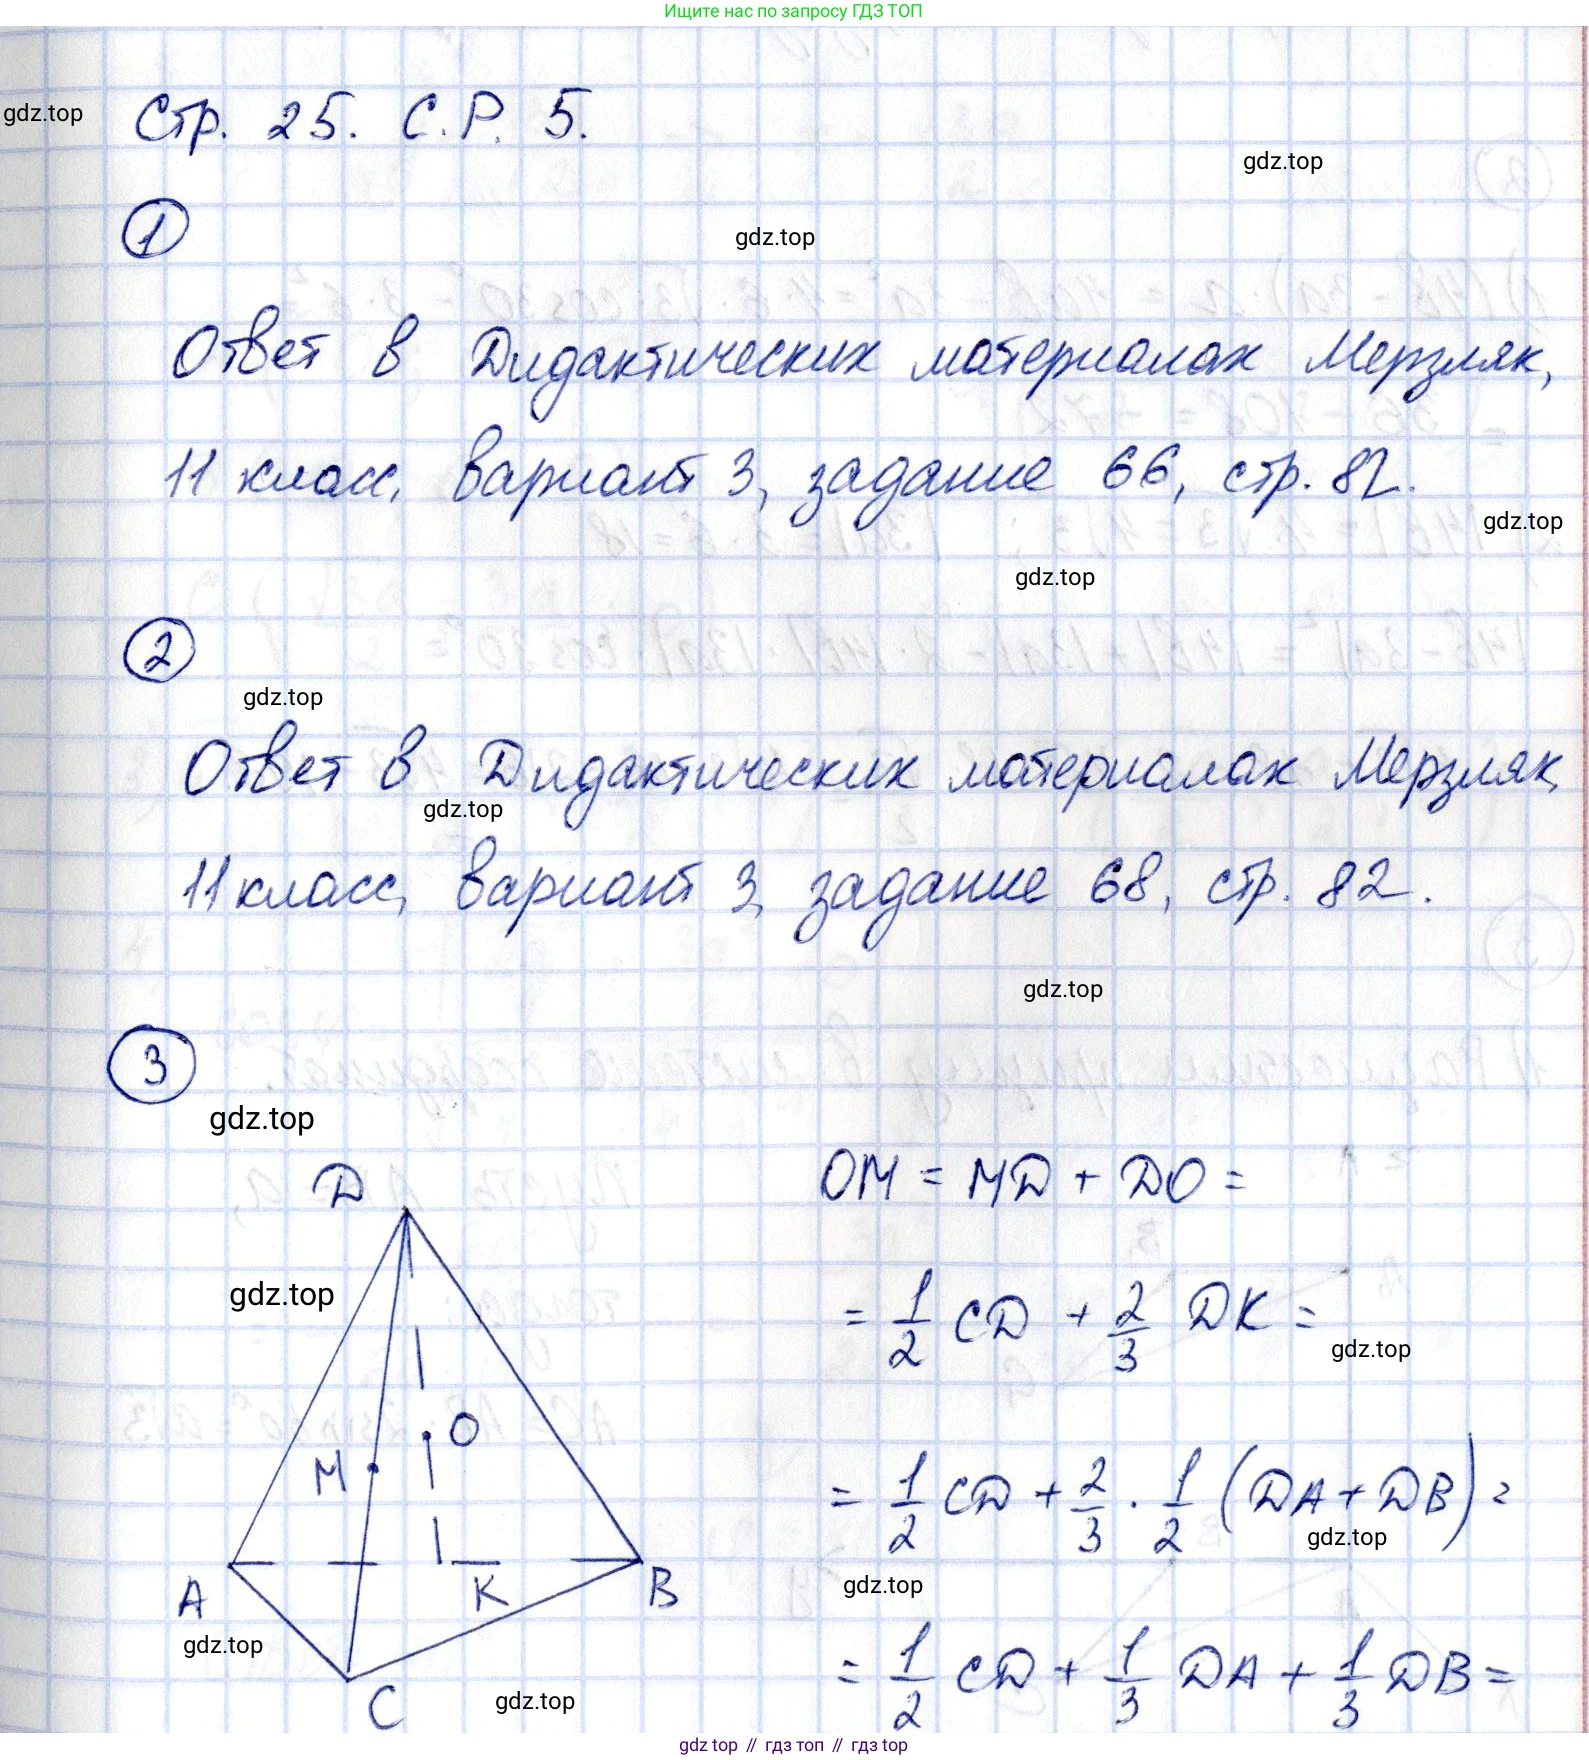 Ищите нас по запросу ГДЗ ТОП
Стр. 25. С.Р. 5.
gdz.top
gdz.top
1
gdz.top
Ответ в Дидактических материалах Мерзляк,
11 класс, вариант 3, задание 66, стр. 82.
gdz.top
gdz.top
2
gdz.top
Ответ в Дидактических материалах Мерзляк,
gdz.top
11 класс, вариант 3, задание 68, стр. 82.
gdz.top
3
gdz.top
D
OM = MD + DO =
gdz.top
= 1/2 CD + 2/3 DK =
gdz.top
O
M
= 1/2 CD + 2/3 · 1/2 (DA + DB) =
gdz.top
A K B
gdz.top
gdz.top
= 1/2 CD + 1/3 DA + 1/3 DB =
C
gdz.top
gdz top // гдз топ // гдз top